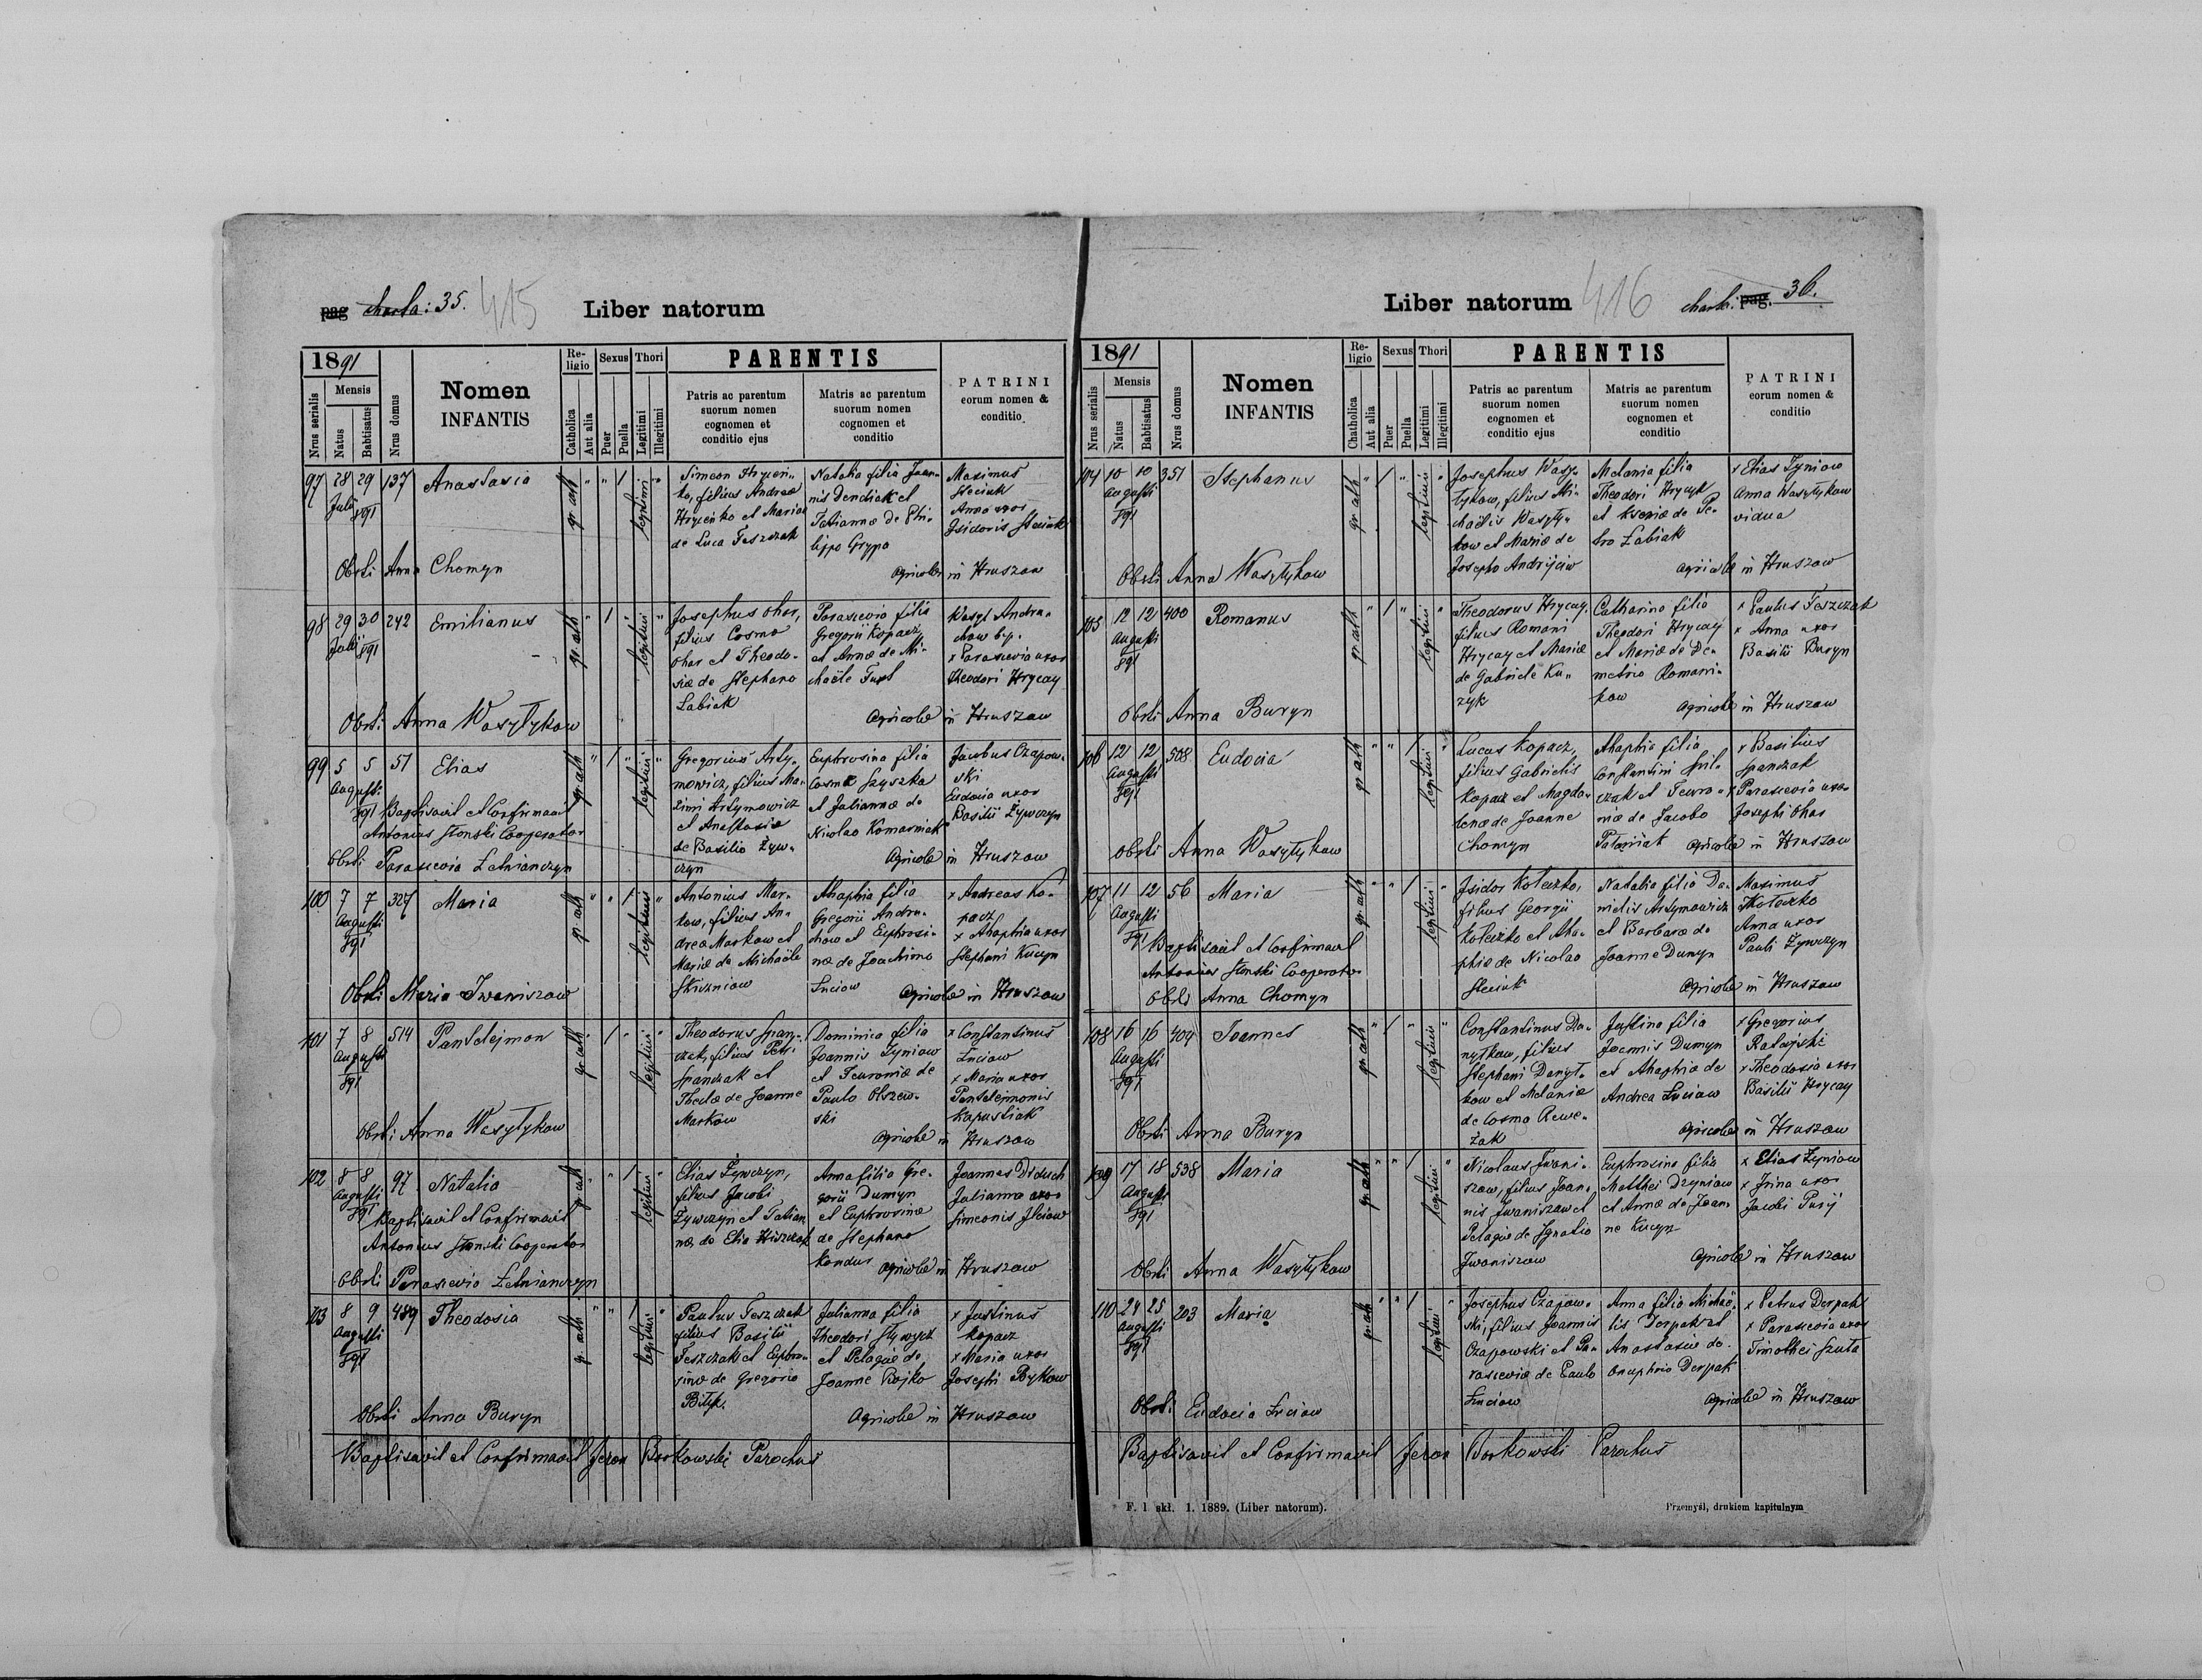 pag charta: 35. 415 Liber natorum
1891
Nrus serialis
Mensis
Natus
Babtisatus
Nrus domus
Nomen
INFANTIS
Re-
ligio
Catholica
Aut alia
Sexus
Puer
Puella
Thori
Legitimi
Illegitimi
PARENTIS
Patris ac parentum
suorum nomen
cognomen et
conditio ejus
Matris ac parentum
suorum nomen
cognomen et
conditio
PATRINI
eorum nomen &
conditio
97 28 29 137 Anastasia
Julii
891
gr. cath " " 1 legitimi "
Simeon Hrycen-
ko, filius Andreae
Hrycenko et Mariae
de Luca Teszczak
Natalia filia Joan-
nis Dendiak et
Tatiannae de Phi-
lippo Grypa
Maximus
Steciuk
Anna uxor
Isidoris Steciuk
Agricolae in Hruszow
Obsti Anna Chomyn
98 29 30 242 Emilianus
Julii 891
gr. cath " 1 " legitimi "
Josephus Ohar,
filius Cosma
Ohar et Theodo-
siae de Stephano
Labiak
Parascevia filia
Gregorii Kopacz,
et Annae de Mi-
chaële
Wasyl Andru-
chow
x Parascevia uxor
Theodori Hrycay
Agricolae in Hruszow
Obsti Anna Wasyłykow
99 5 5 51 Elias
Augusti
891 Baptisavit et Confirmavit
Antonius Słonski Cooperator
gr. cath " 1 " legitimi "
Gregorius Arty-
mowicz, filius Ma-
ximi Artymowicz
et Anastasiae
de Basilio Żyw-
czyn
Euphrosina filia
Cosmae Szyszka
et Juliannae de
Nicolao Komarniak
Jacobus Czapow-
ski
Eudocia uxor
Basilii Żywczyn
Agricolae in Hruszow
Obsti Parascevia Letnianczyn
100 7 7 327 Maria
Augusti
891
gr. cath " " 1 legitimi "
Antonius Mar-
kow, filius An-
drea Markow et
Mariae de Michaële
Skiczniow
Ahaphia filia
Gregorii Andru-
chow et Euphrosi-
nae de Joachimo
Łuciow
x Andreas Ko-
pacz
x Ahaphia uxor
Stephani Kucyn
Agricolae in Hruszow
Obsti Maria Iwaniszow
101 7 8 514 Pantelejmon
Augusti
891
gr. cath " 1 " legitimi "
Theodorus Span-
czak, filius Petri
Spanczak et
Theclae de Joanne
Markow
Dominica filia
Joannis Zyniow
et Feuroniae de
Paulo Olszew-
ski
x Constantinus
Łuciow
x Maria uxor
Pantelejmonis
Kapustiak
Agricolae in Hruszow
Obsti Anna Wasyłykow
102 8 8 97 Natalia
Augusti
891 Baptisavit et Confirmavit
Antonius Słonski Cooperator
gr. cath " " 1 legitimi "
Elias Żywczyn,
filius Jacobi
Żywczyn et Tatian-
nae de Elia Hiszczak
Anna filia Gre-
gorii Dumyn
et Euphrosinae
de Stephano
Kandus
Joannes Diduch
Julianna uxor
Simeonis Ilciow
Agricolae in Hruszow
Obsti Parascevia Letnianczyn
103 8 9 489 Theodosia
Augusti
891
gr. cath " " 1 legitimi "
Paulus Teszczak
filius Basilii
Teszczak et Euphro-
sinae de Gregorio
Biłyk.
Julianna filia
Theodori
et Pelagiae de
Joanne Bojko
x Justinus
Kopacz
x Maria uxor
Josephi Bykow
Agricolae in Hruszow
Obsti Anna Buryn
Baptisavit et Confirmavit Jeron Borkowski Parochus
Liber natorum 416 charta: pag. 36.
1891
Nrus serialis
Mensis
Natus
Babtisatus
Nrus domus
Nomen
INFANTIS
Re-
ligio
Chatholica
Aut alia
Sexus
Puer
Puella
Thori
Legitimi
Illegitimi
PARENTIS
Patris ac parentum
suorum nomen
cognomen et
conditio ejus
Matris ac parentum
suorum nomen
cognomen et
conditio
PATRINI
eorum nomen &
conditio
104 10 10 351 Stephanus
Augusti
891
gr. cath " 1 " legitimi "
Josephus Wasy-
łykow, filius Mi-
chaëlis Wasyły-
kow et Mariae de
Josepho Andrijciw
Melania filia
Theodori Hrycyk
et Kseniae de Pe-
tro Labiak
x Elias Zyniow
Anna Wasyłykow
vidua
Agricolae in Hruszow
Obsti Anna Wasyłykow
105 12 12 400 Romanus
Augusti
891
gr. cath " 1 " legitimi "
Theodorus Hrycay,
filius Romani
Hrycay et Mariae
de Gabriele Ku-
zyk
Catharina filia
Theodori Hrycay
et Mariae de De-
metrio Romani-
kow
x Paulus Teszczak
x Anna uxor
Basilii Buryn
Agricolae in Hruszow
Obsti Anna Buryn
106 12 12 508 Eudocia
Augusti
891
gr. cath " " 1 legitimi "
Lucas Kopacz,
filius Gabrielis
Kopacz et Magda-
lenae de Joanne
Chomyn
Ahaphia filia
Constantini Spil-
czak et Feuro-
niae de Jacobo
x Basilius
Spanczak
x Parascevia uxor
Josephi Ohar
Agricolae in Hruszow
Obsti Anna Wasyłykow
107 11 12 56 Maria
Augusti
891 Baptisavit et Confirmavit
Antonius Słonski Cooperator
gr. cath " " 1 legitimi "
Isidor Koleczko,
filius Georgii
Koleczko et Aha-
phiae de Nicolao
Steciuk
Natalia filia Da-
nielis Artymowicz
et Barbarae de
Joanne Dumyn
Maximus
Koleczko
Anna uxor
Pauli Żywczyn
Agricolae in Hruszow
Obsti Anna Chomyn
108 16 16 409 Joannes
Augusti
891
gr. cath " 1 " legitimi "
Constantinus Da-
nyłkow, filius
Stephani Danył-
kow et Melaniae
de Cosma Rewe-
żak
Justina filia
Joannis Dumyn
et Ahaphiae de
Andrea Łuciow
x Gregorius
Ratajski
x Theodosia uxor
Basilii Hrycay
Agricolae in Hruszow
Obsti Anna Buryn
109 17 18 538 Maria
Augusti
891
gr. cath " " 1 legitimi "
Nicolaus Iwani-
szow, filius Joan-
nis Iwaniszow et
Pelagiae de Ignatio
Iwaniszow
Euphrosina filia
Matthei Dzyniow
et Annae de Joan-
ne Kucyn
x Elias Zyniow
x Irina uxor
Jacobi Pusij
Agricolae in Hruszow
Obsti Anna Wasyłykow
110 24 25 203 Maria
Augusti
891
gr. cath " " 1 legitimi "
Josephus Czapow-
ski, filius Joannis
Czapowski et Pa-
rasceviae de Paulo
Łuciow
Anna filia Michaë-
lis Derpak et
Anastasiae de
Onuphrio Derpak
x Petrus Derpak
x Parascevia uxor
Timothei Szuta
Agricolae in Hruszow
Obsti Eudocia Łuciow
Baptisavit et Confirmavit Jeron Borkowski Parochus
F. 1 skł. 1. 1889. (Liber natorum).
Przemyśl, drukiem kapitulnym